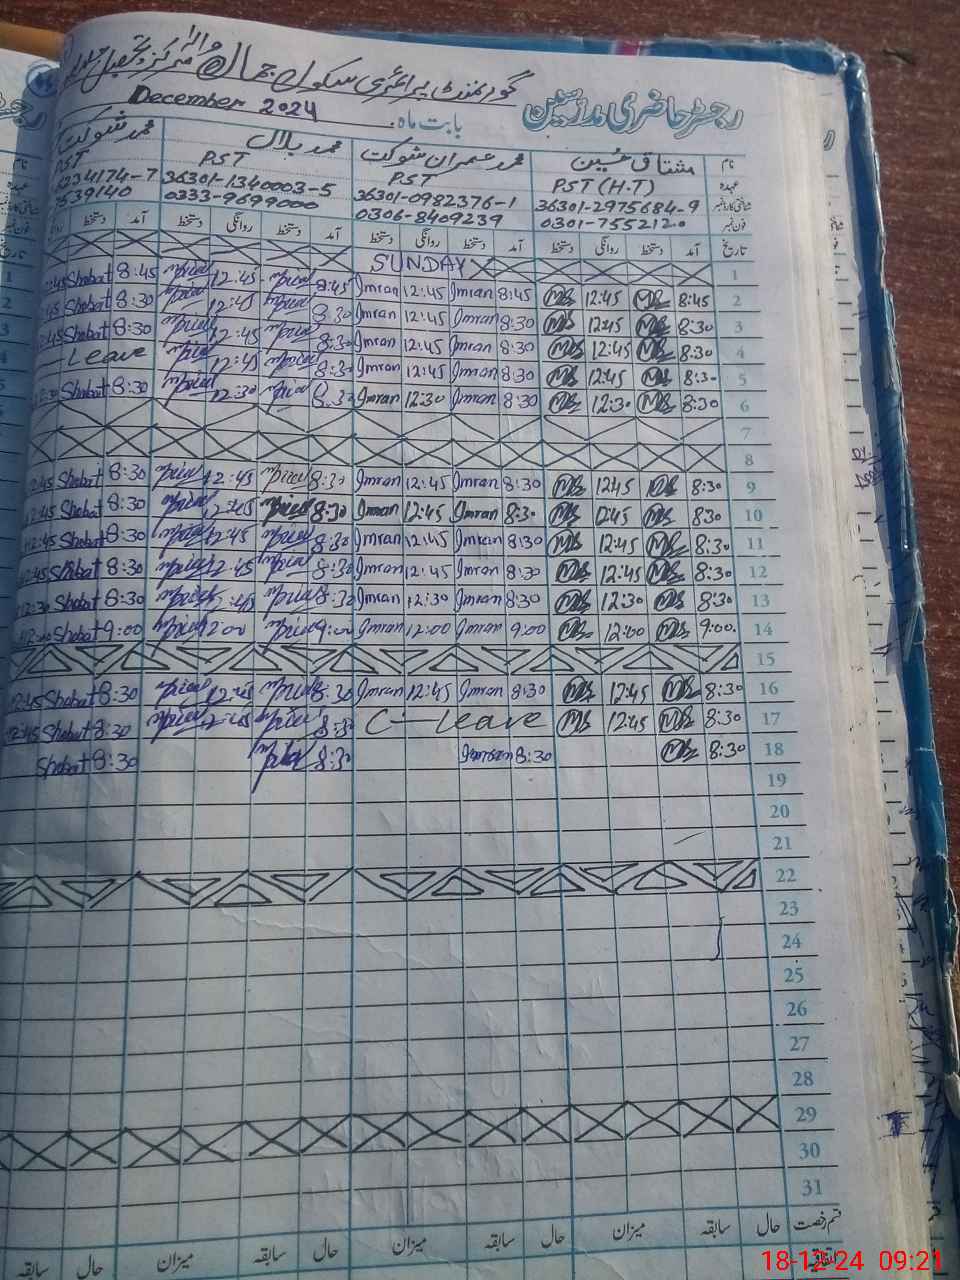 گورنمنٹ پرائمری سکول جمال والا مرکز
رجسٹر حاضری مدرسین
بابت ماہ December 2024
نام مشتاق حسین محمد عمران شوکت محمد بلال محمد شوکت
عہدہ PST (H.T) PST PST PST
36301-2975684-9 36301-0982376-1 36301-1340003-5 6234174-7
فون نمبر 0301-7552120 0306-8409239 0333-9699000 7539140
تاریخ آمد دستخط روانگی دستخط آمد دستخط روانگی دستخط آمد دستخط روانگی دستخط آمد دستخط
1 SUNDAY
2 8:45 MS 12:45 MS 8:45 Imran 12:45 Imran 8:45 12:45 8:45 Shobat
3 8:30 MS 12:45 MS 8:30 Imran 12:45 Imran 8:30 12:45 8:30 Shobat
4 8:30 MS 12:45 MS 8:30 Imran 12:45 Imran 8:30 12:45 8:30 Shobat
5 8:30 MS 12:45 MS 8:30 Imran 12:45 Imran 8:30 12:45 Leave
6 8:30 MS 12:30 MS 8:30 Imran 12:30 Imran 8:30 12:30 8:30 Shobat
7
8
9 8:30 MS 12:45 MS 8:30 Imran 12:45 Imran 8:30 12:45 8:30 Shobat 12:45
10 8:30 MS 12:45 MS 8:30 Imran 12:45 Imran 8:30 12:45 8:30 Shobat 12:45
11 8:30 MS 12:45 MS 8:30 Imran 12:45 Imran 8:30 12:45 8:30 Shobat 12:45
12 8:30 MS 12:45 MS 8:30 Imran 12:45 Imran 8:30 12:45 8:30 Shobat 12:45
13 8:30 MS 12:30 MS 8:30 Imran 12:30 Imran 8:30 12:45 8:30 Shobat 12:30
14 9:00 MS 12:00 MS 9:00 Imran 12:00 Imran 9:00 12:00 9:00 Shobat
15
16 8:30 MS 12:45 MS 8:30 Imran 12:45 Imran 8:30 12:45 8:30 Shobat 12:45
17 8:30 MS 12:45 MS C-Leave 8:30 12:45 8:30 Shobat 12:45
18 8:30 MS 8:30 Imran 8:30 8:30 Shobat
19
20
21
22
23
24
25
26
27
28
29
30
31
قسم رخصت حال سابقہ میزان حال سابقہ میزان حال سابقہ میزان حال سابقہ
اتفاقی
18-12-24 09:21